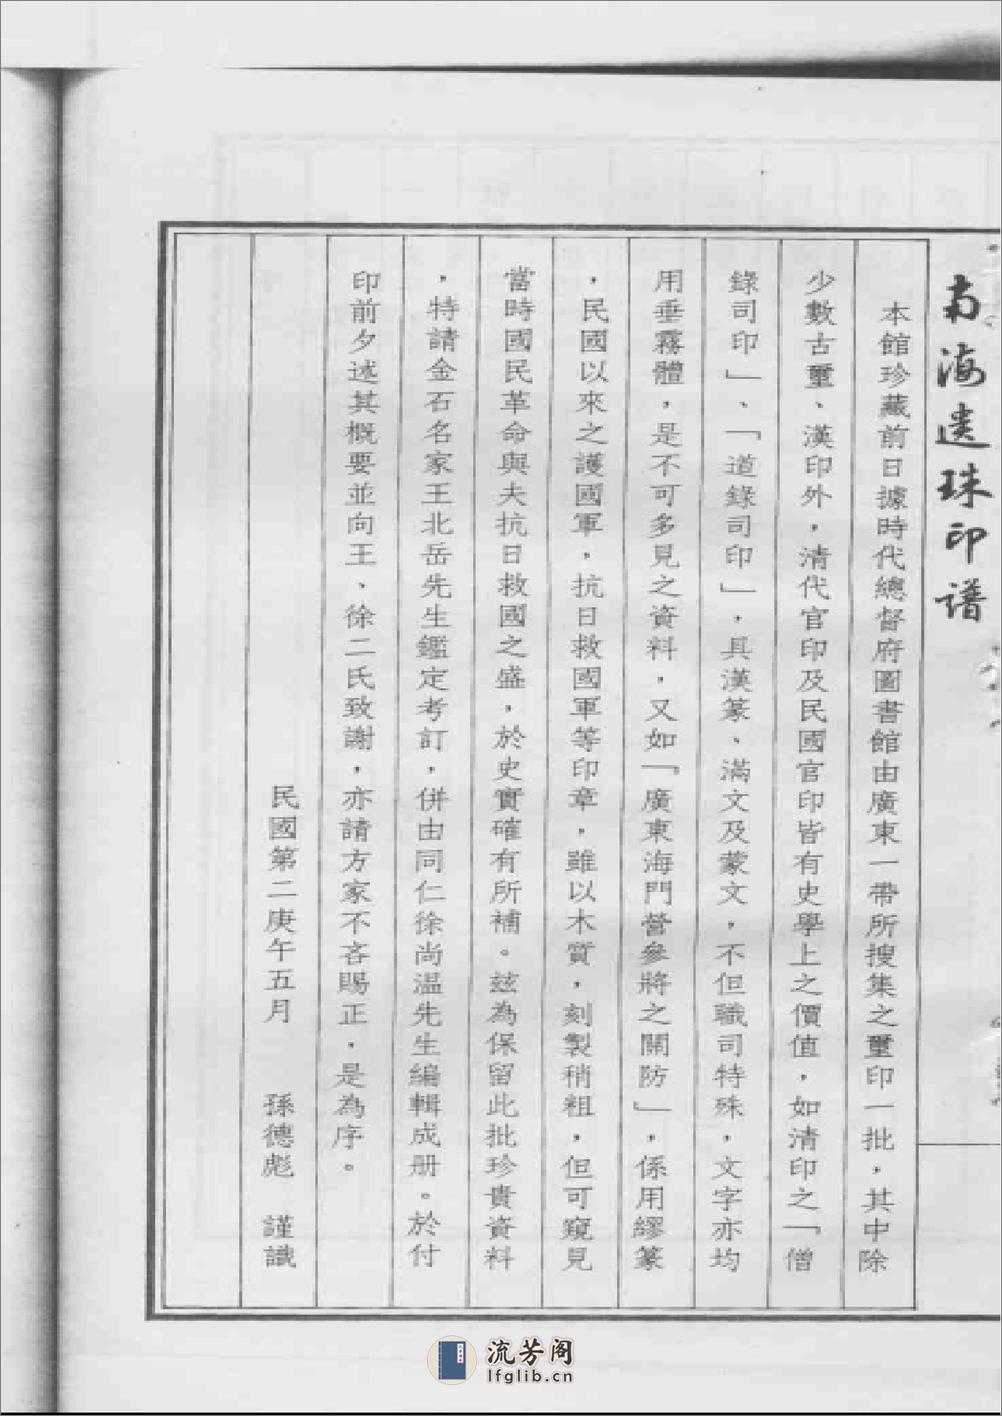 南海遺珠印譜
本館珍藏前日據時代總督府圖書館由廣東一帶所搜集之璽印一批，其中除
少數古璽、漢印外，清代官印及民國官印皆有史學上之價值，如清印之「僧
錄司印」、「道錄司印」，具漢篆、滿文及蒙文，不但職司特殊，文字亦均
用垂露體，是不可多見之資料，又如「廣東海門營參將之關防」，係用繆篆
，民國以來之護國軍，抗日救國軍等印章，雖以木質，刻製稍粗，但可窺見
當時國民革命與夫抗日救國之盛，於史實確有所補。茲為保留此批珍貴資料
，特請金石名家王北岳先生鑑定考訂，併由同仁徐尚溫先生編輯成册。於付
印前夕述其概要並向王、徐二氏致謝，亦請方家不吝賜正，是為序。
民國第二庚午五月　孫德彪　謹識
流芳阁
lfglib.cn